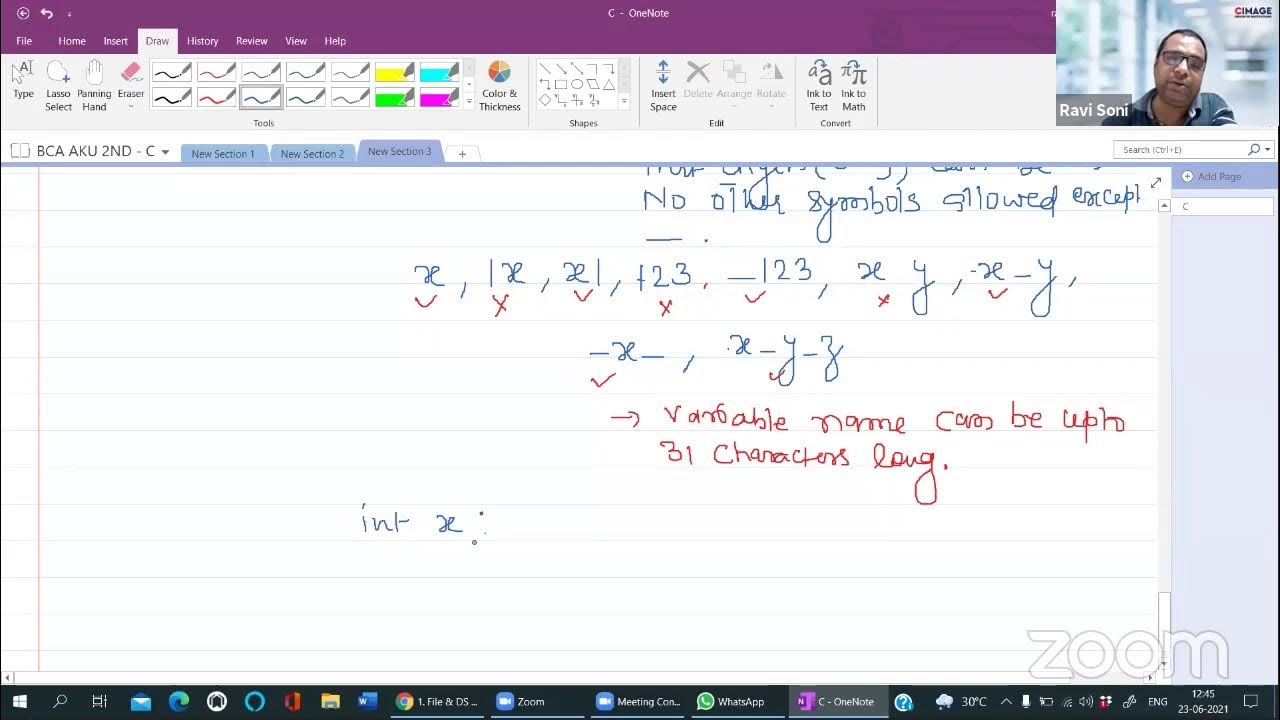 C - OneNote
CIMAGE
File Home Insert Draw History Review View Help
Type Lasso Select Panning Hand Eraser Color & Thickness Insert Space Delete Arrange Rotate Ink to Text Ink to Math
Ravi Soni
Tools Shapes Edit Convert
BCA AKU 2ND - C New Section 1 New Section 2 New Section 3 Search (Ctrl+E)
Add Page
No other symbols allowed except
_ .
C
x , 1x , x1 , 123 , _123 , x y , x_y ,
_x_ , x_y_z
→ Variable name can be upto
31 characters long.
int x ;
zoom
1. File & DS ... Zoom Meeting Con... WhatsApp C - OneNote 30°C ENG 12:45
23-06-2021